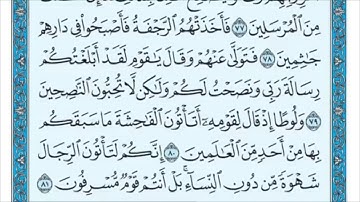 مِنَ ٱلْمُرْسَلِينَ ٧٧ فَأَخَذَتْهُمُ ٱلرَّجْفَةُ فَأَصْبَحُوا۟ فِى دَارِهِمْ
جَـٰثِمِينَ ٧٨ فَتَوَلَّىٰ عَنْهُمْ وَقَالَ يَـٰقَوْمِ لَقَدْ أَبْلَغْتُكُمْ
رِسَالَةَ رَبِّى وَنَصَحْتُ لَكُمْ وَلَـٰكِن لَّا تُحِبُّونَ ٱلنَّـٰصِحِينَ
٧٩ وَلُوطًا إِذْ قَالَ لِقَوْمِهِۦٓ أَتَأْتُونَ ٱلْفَـٰحِشَةَ مَا سَبَقَكُم
بِهَا مِنْ أَحَدٍ مِّنَ ٱلْعَـٰلَمِينَ ٨٠ إِنَّكُمْ لَتَأْتُونَ ٱلرِّجَالَ
شَهْوَةً مِّن دُونِ ٱلنِّسَآءِ ۚ بَلْ أَنتُمْ قَوْمٌ مُّسْرِفُونَ ٨١